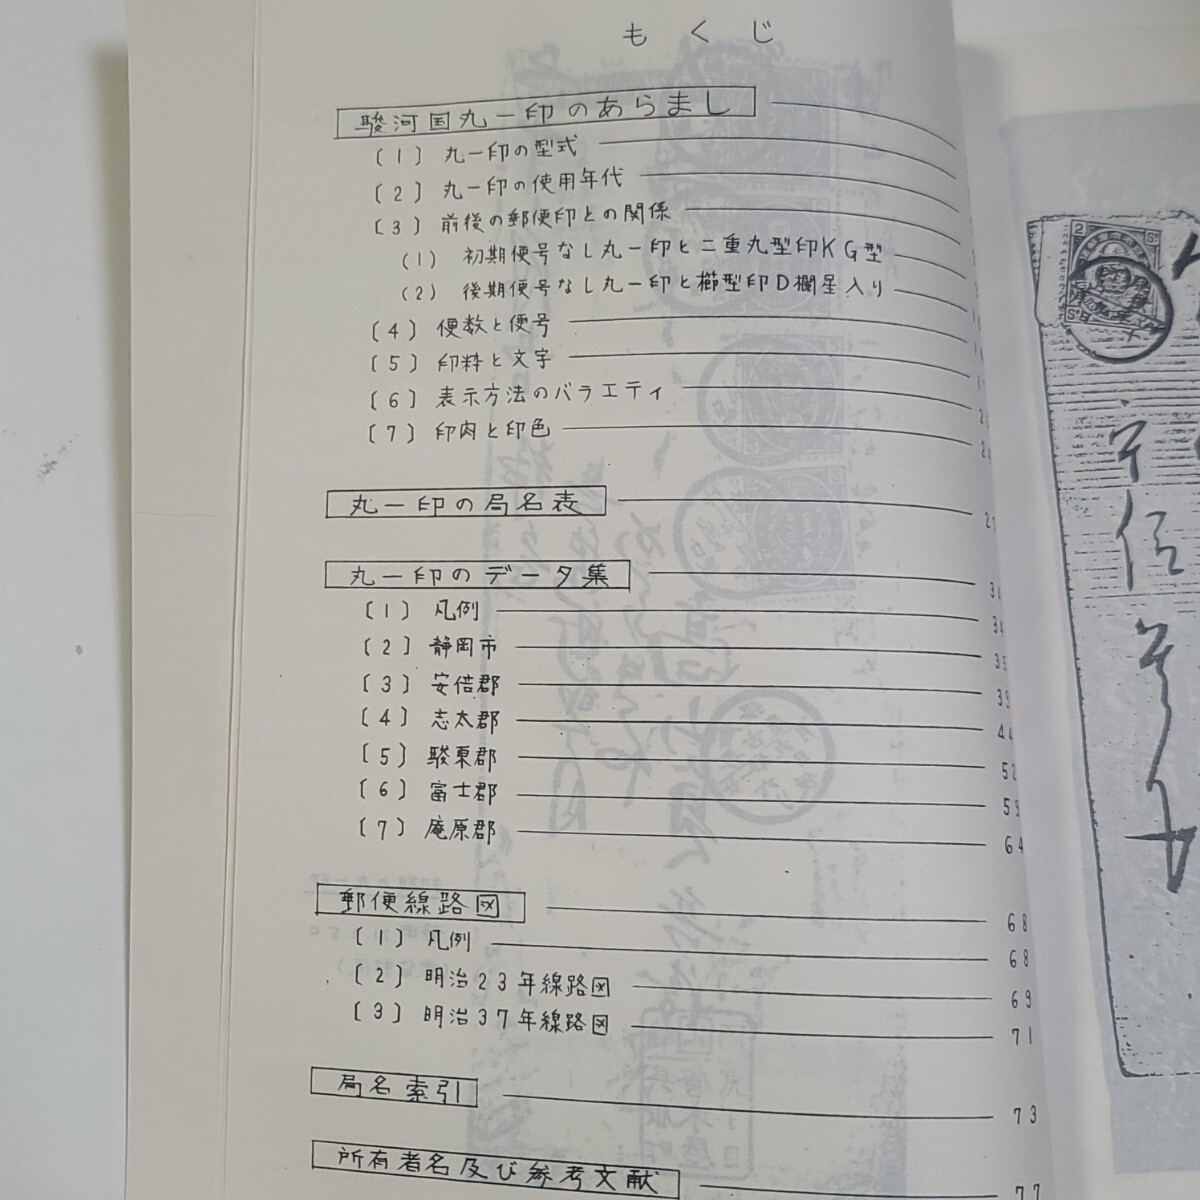 もくじ
駿河国丸一印のあらまし
〔1〕丸一印の型式
〔2〕丸一印の使用年代
〔3〕前後の郵便印との関係
(1) 初期便号なし丸一印と二重丸型印KG型
(2) 後期便号なし丸一印と櫛型印D欄星入り
〔4〕便数と便号
〔5〕印粋と文字
〔6〕表示方法のバラエティ
〔7〕印肉と印色
丸一印の局名表
丸一印のデータ集
〔1〕凡例
〔2〕静岡市
〔3〕安倍郡 39
〔4〕志太郡 44
〔5〕駿東郡 52
〔6〕富士郡 59
〔7〕庵原郡 64
郵便線路図 68
〔1〕凡例 68
〔2〕明治23年線路図 69
〔3〕明治37年線路図 71
局名索引 73
所有者名及び参考文献 77